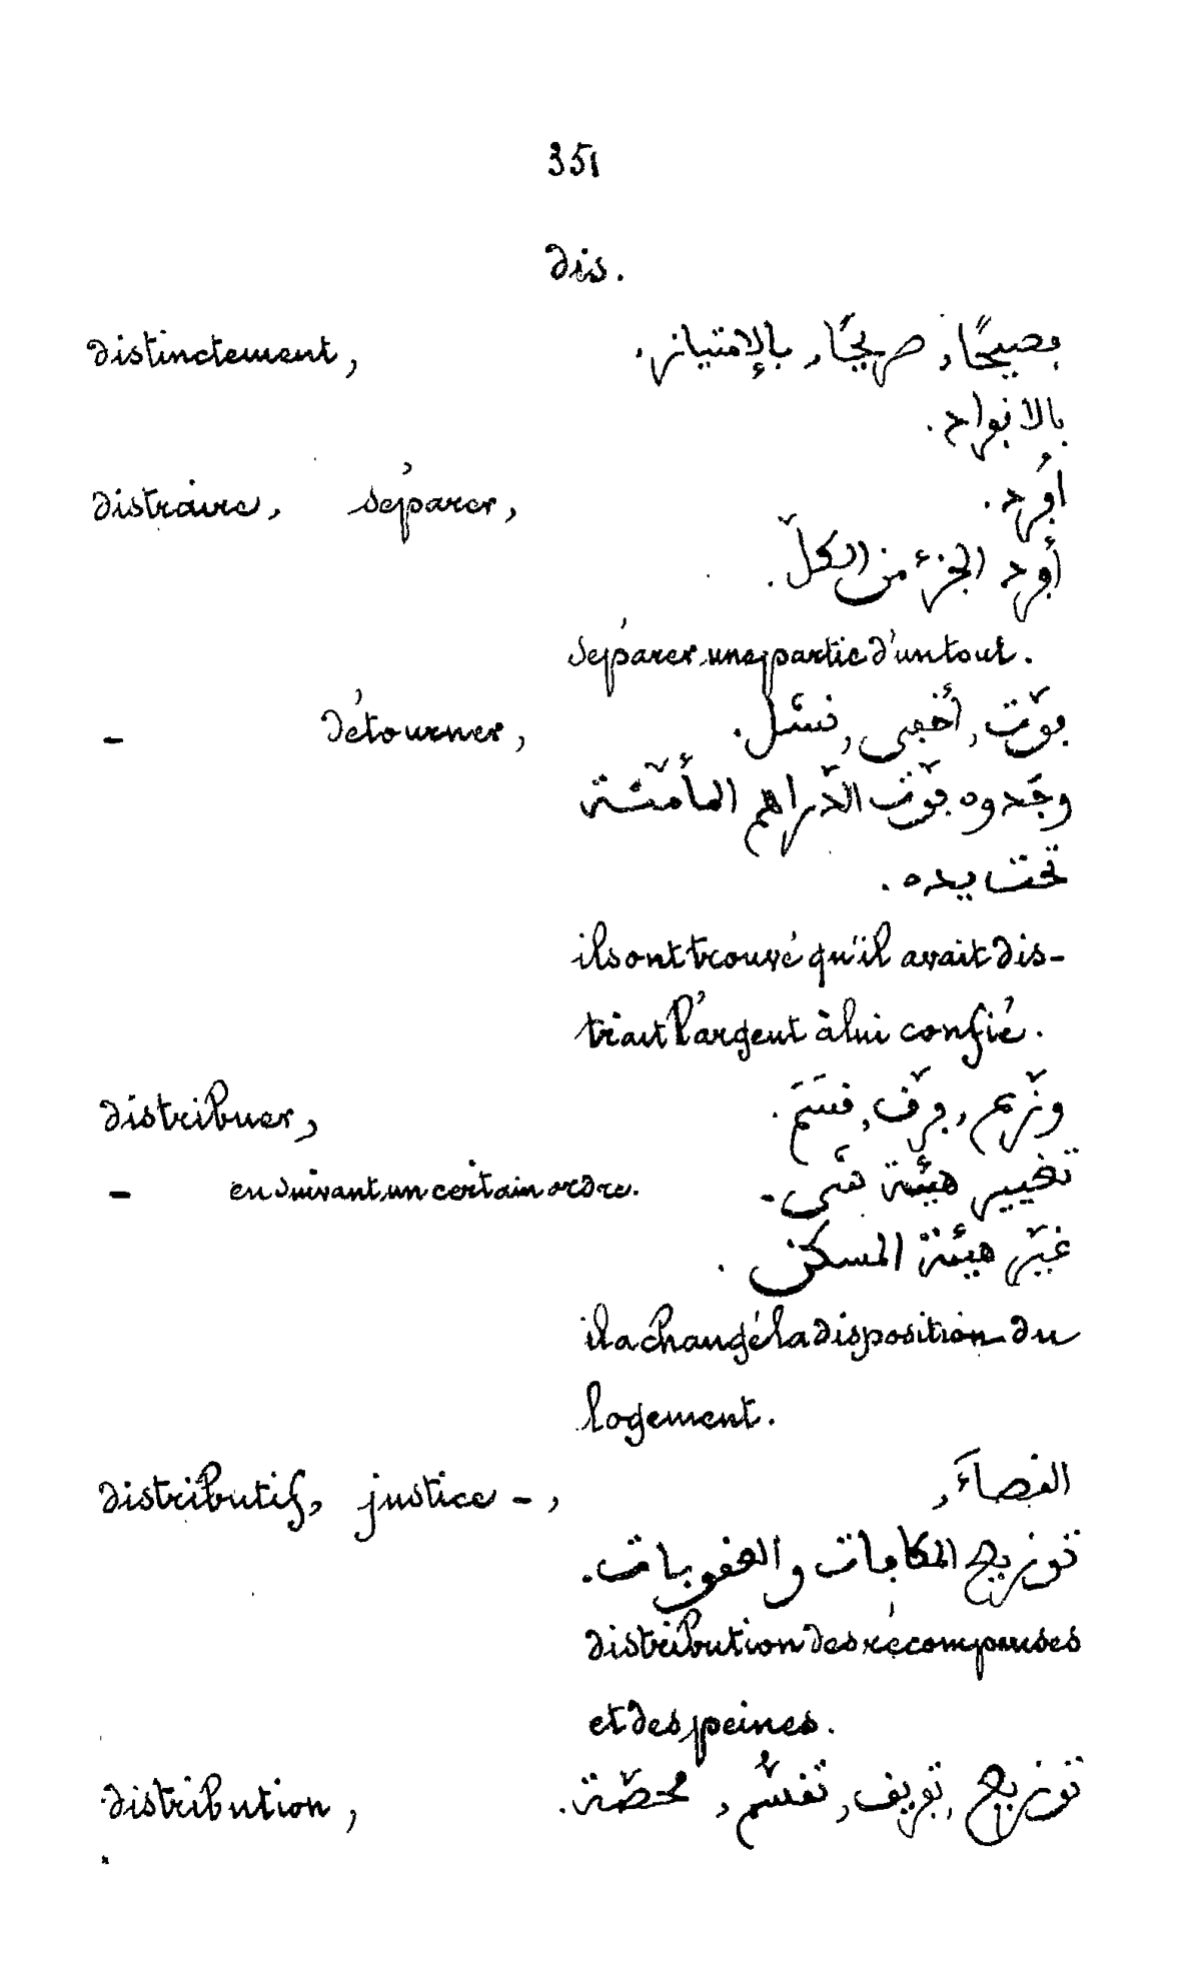 351
dis.
distinctement, فصيحًا, صريحًا, بالإمتياز,
بالانفراد.
distraire, séparer, أفرد.
أفرد الجزء من الكلّ.
séparer une partie d'un tout.
- détourner, فوّت, أخفى, نشل.
وجَدوه فوّت الدّراهم المأمّنة
تحت يده.
ils ont trouvé qu'il avait dis-
trait l'argent à lui confié.
distribuer, وزّع, فرّق, قسَّمَ.
- en suivant un certain ordre. تغيير هيئة شى -
غيّر هيئة المسكن.
il a changé la disposition du
logement.
distributif, justice -, القصاَء,
توزيع المكافات والعقوبات.
distribution des récompenses
et des peines.
distribution, توزيع, تفريق, تقسُّم, محصّة.